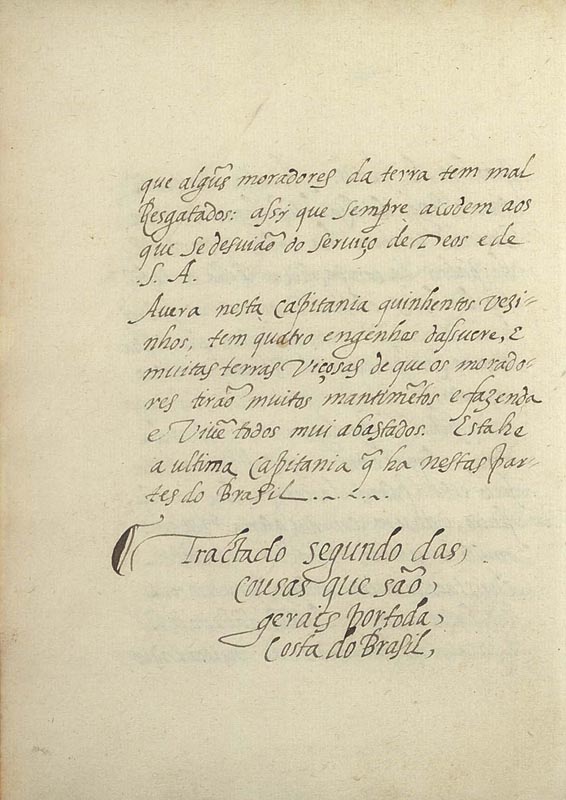 que algũs moradores da terra tem mal
Resgatados: assy que sempre acodem aos
que se desuião do serviço de Deos e de
S. A.
Auera nesta capitania quinhentos vezi-
nhos, tem quatro engenhos dassucre, E
muitas terras Viçosas de que os morado-
res tirão muitos mantimẽtos e fazenda
e Viuẽ todos mui abastados. Esta he
a ultima capitania q̃ ha nestas par-
tes do Brasil
Tractado segundo das,
cousas que são,
gerais por toda,
Costa do Brasil,